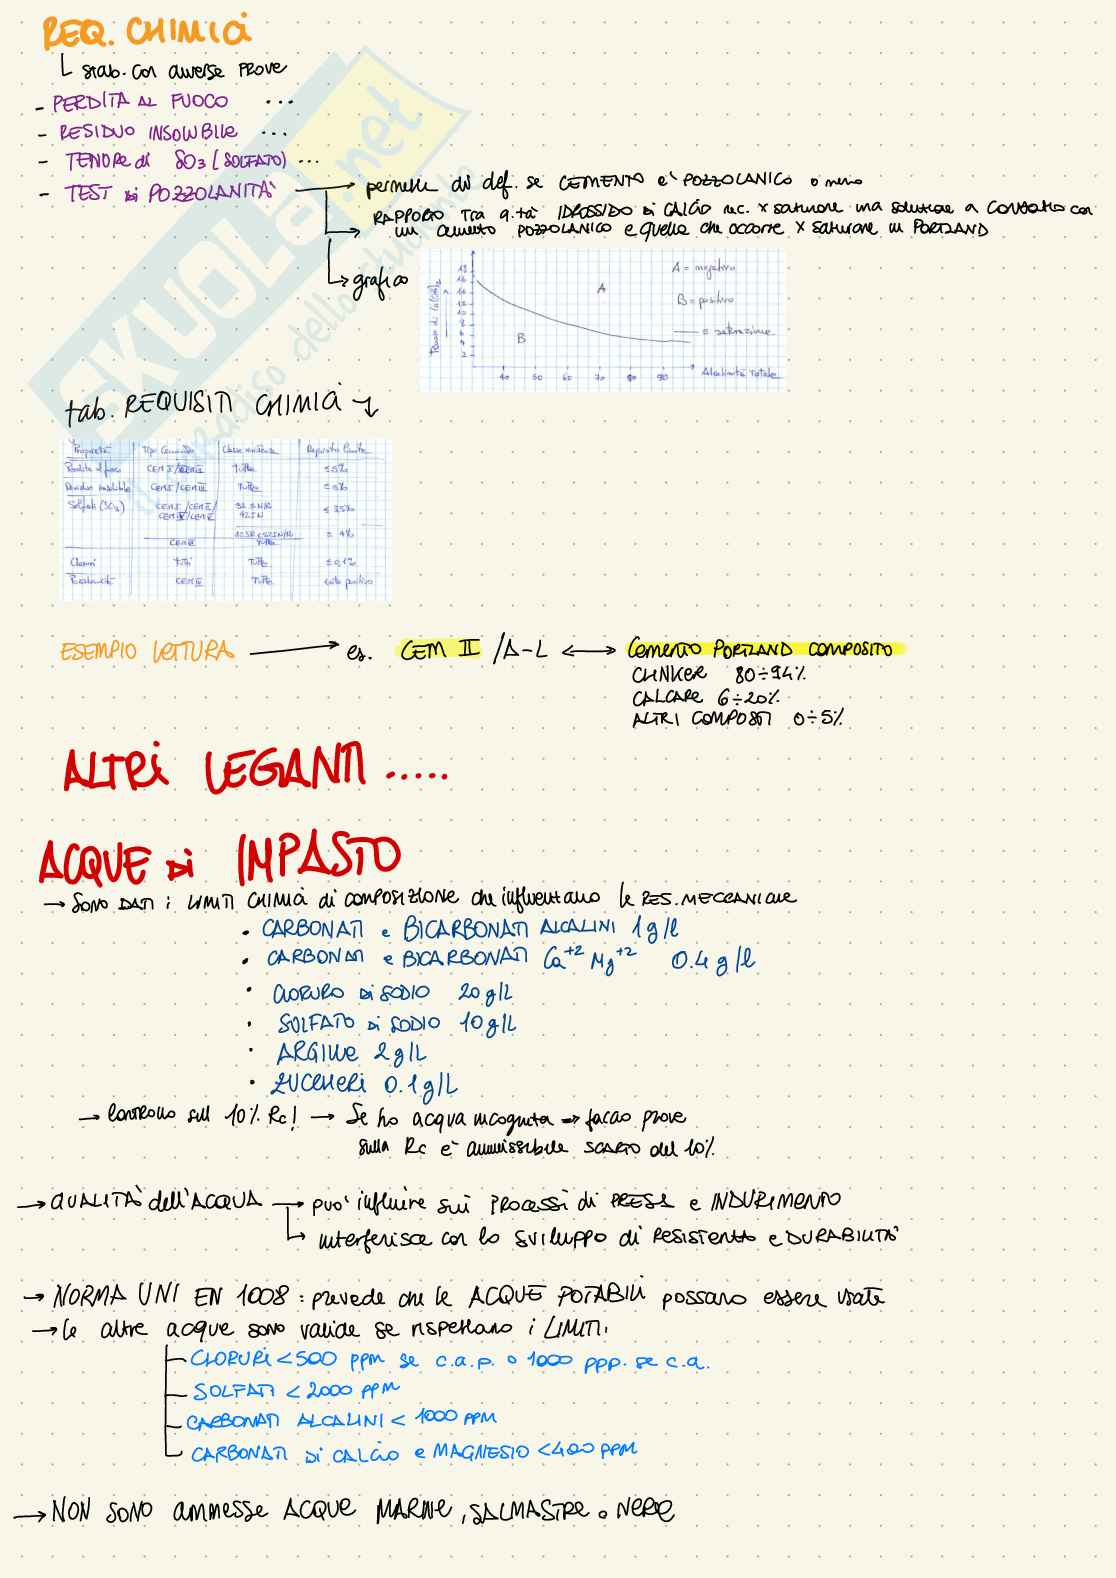 REQ. CHIMICI
stab. con diverse PROVE
- PERDITA AL FUOCO ...
- RESIDUO INSOLUBILE ...
- TENORE di SO3 (SOLFATO) ...
- TEST di POZZOLANITÀ
permette di def. se CEMENTO è POZZOLANICO o meno
RAPPORTO Tra q.tà IDROSSIDO di CALCIO nec. x saturare una soluzione a CONTATTO con
un cemento POZZOLANICO e quella che occorre x saturare un PORTLAND
grafico
A = negativo
B = positivo
= saturazione
A
B
18
16
14
12
10
8
6
4
2
40 50 60 70 80 90
Alcalinità Totale
tab. REQUISITI CHIMICI
Proprietà Tipo Cemento Classe resistenza Requisito limite
Perdita al fuoco CEM I/CEM III TUTTE ≤5%
Residuo insolubile CEM I/CEM III TUTTE ≤5%
Solfati (SO3) CEM I/CEM II/ 32.5N/R ≤ 3.5%
CEM IV/CEM V 42.5N
42.5R 52.5N/R ≤ 4%
CEM III TUTTE
Cloruri TUTTI TUTTE ≤0,1%
Pozzolanicità CEM IV TUTTE esito positivo
ESEMPIO LETTURA → es. CEM II /A-L ↔ Cemento PORTLAND COMPOSITO
CLINKER 80÷94%
CALCARE 6÷20%
ALTRI COMPOSTI 0÷5%
ALTRI LEGANTI .....
ACQUE di IMPASTO
→ SONO DATI i LIMITI CHIMICI di COMPOSIZIONE che influentano le RES. MECCANICHE
• CARBONATI e BICARBONATI ALCALINI 1 g/l
• CARBONATI e BICARBONATI Ca+2 Mg+2 0.4 g/l
• CLORURO DI SODIO 20 g/L
• SOLFATO di SODIO 10 g/L
• ARGILLE 2 g/L
• ZUCCHERI 0.1 g/L
→ Controllo sul 10% Rc! → Se ho acqua incognita → faccio prove
sulla Rc è ammissibile SCARTO del 10%
→ QUALITÀ dell'ACQUA → può influire sui PROCESSI di PRESA e INDURIMENTO
→ interferisce con lo SVILUPPO di RESISTENZA e DURABILITÀ
→ NORMA UNI EN 1008 : prevede che le ACQUE POTABILI possano essere usate
→ le altre acque sono valide se rispettano i LIMITI:
CLORURI < 500 ppm se c.a.p. o 1000 ppp. se c.a.
SOLFATI < 2000 PPM
CARBONATI ALCALINI < 1000 PPM
CARBONATI DI CALCIO e MAGNESIO < 400 PPM
→ NON SONO ammesse ACQUE MARINE, SALMASTRE o NERE
SKUOLA.net